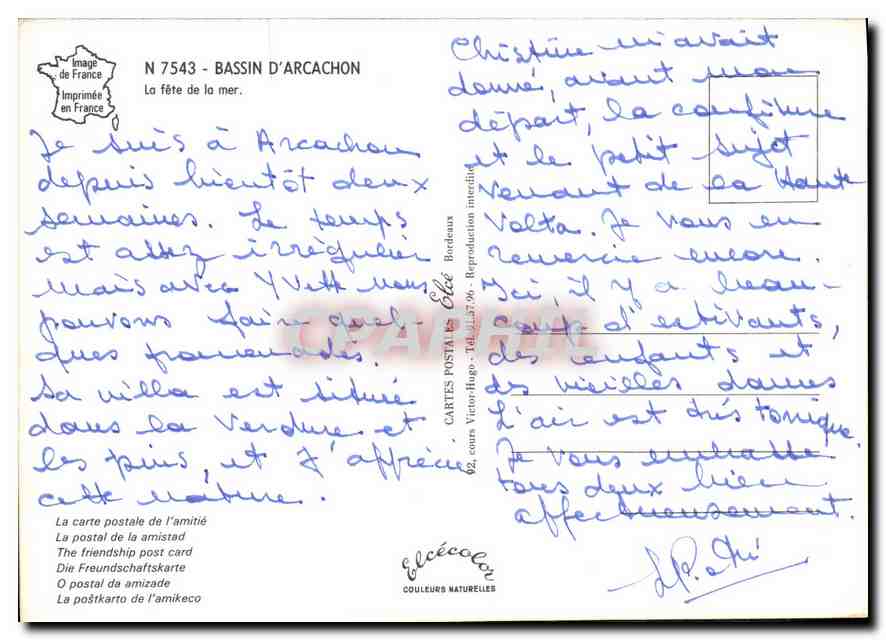 Image
de France
Imprimée
en France
N 7543 - BASSIN D'ARCACHON
La fête de la mer.
Je suis à Arcachon
depuis bientôt deux
semaines. Le temps
est assez irrégulier
mais avec Yvette nous
pouvons faire quel-
ques promenades.
Sa villa est située
dans la verdure et
les pins, et j'apprécie
cette nature.
La carte postale de l'amitié
La postal de la amistad
The friendship post card
Die Freundschaftskarte
O postal da amizade
La poŝtkarto de l'amikeco
CARTES POSTALES Elcé Bordeaux
92, cours Victor-Hugo - Tél. 91.57.96 - Reproduction interdite
Elcécolor
COULEURS NATURELLES
Christine m'avait
donné, avant mon
départ, la confiture
et le petit sujet
venant de la Haute
Volta. Je vous en
remercie encore.
Ici, il y a beau-
coup d'estivants,
des enfants et
des vieilles dames
L'air est très tonique.
Je vous embrasse
tous deux bien
affectueusement.
CPAPHIL